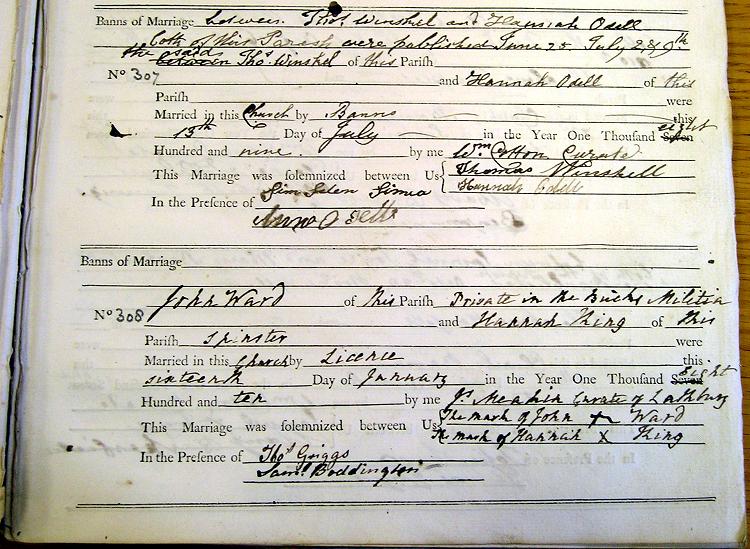 Banns of Marriage between Thos. Winshel and Hannah Odell
both of this Parish were published June 25 July 2 & 9th
the said
between Thos. Winshel of this Parish
No 307 and Hannah Odell of this
Parish were
Married in this Church by Banns this
13th Day of July in the Year One Thousand Seven eight
Hundred and nine by me Wm. Cotton Curate
This Marriage was solemnized between Us { Thomas Winshell
Hannah Odell
In the Presence of
Ann Odell
Banns of Marriage
John Ward of this Parish Private in the Bucks Militia
No 308 and Hannah Thing of this
Parish Spinster were
Married in this Church by Licence this
sixteenth Day of January in the Year One Thousand Seven Eight
Hundred and ten by me Curate of Lathbury
This Marriage was solemnized between Us The mark of John X Ward
The mark of Hannah X Thing
In the Presence of Thos Griggs
Saml. Boddington